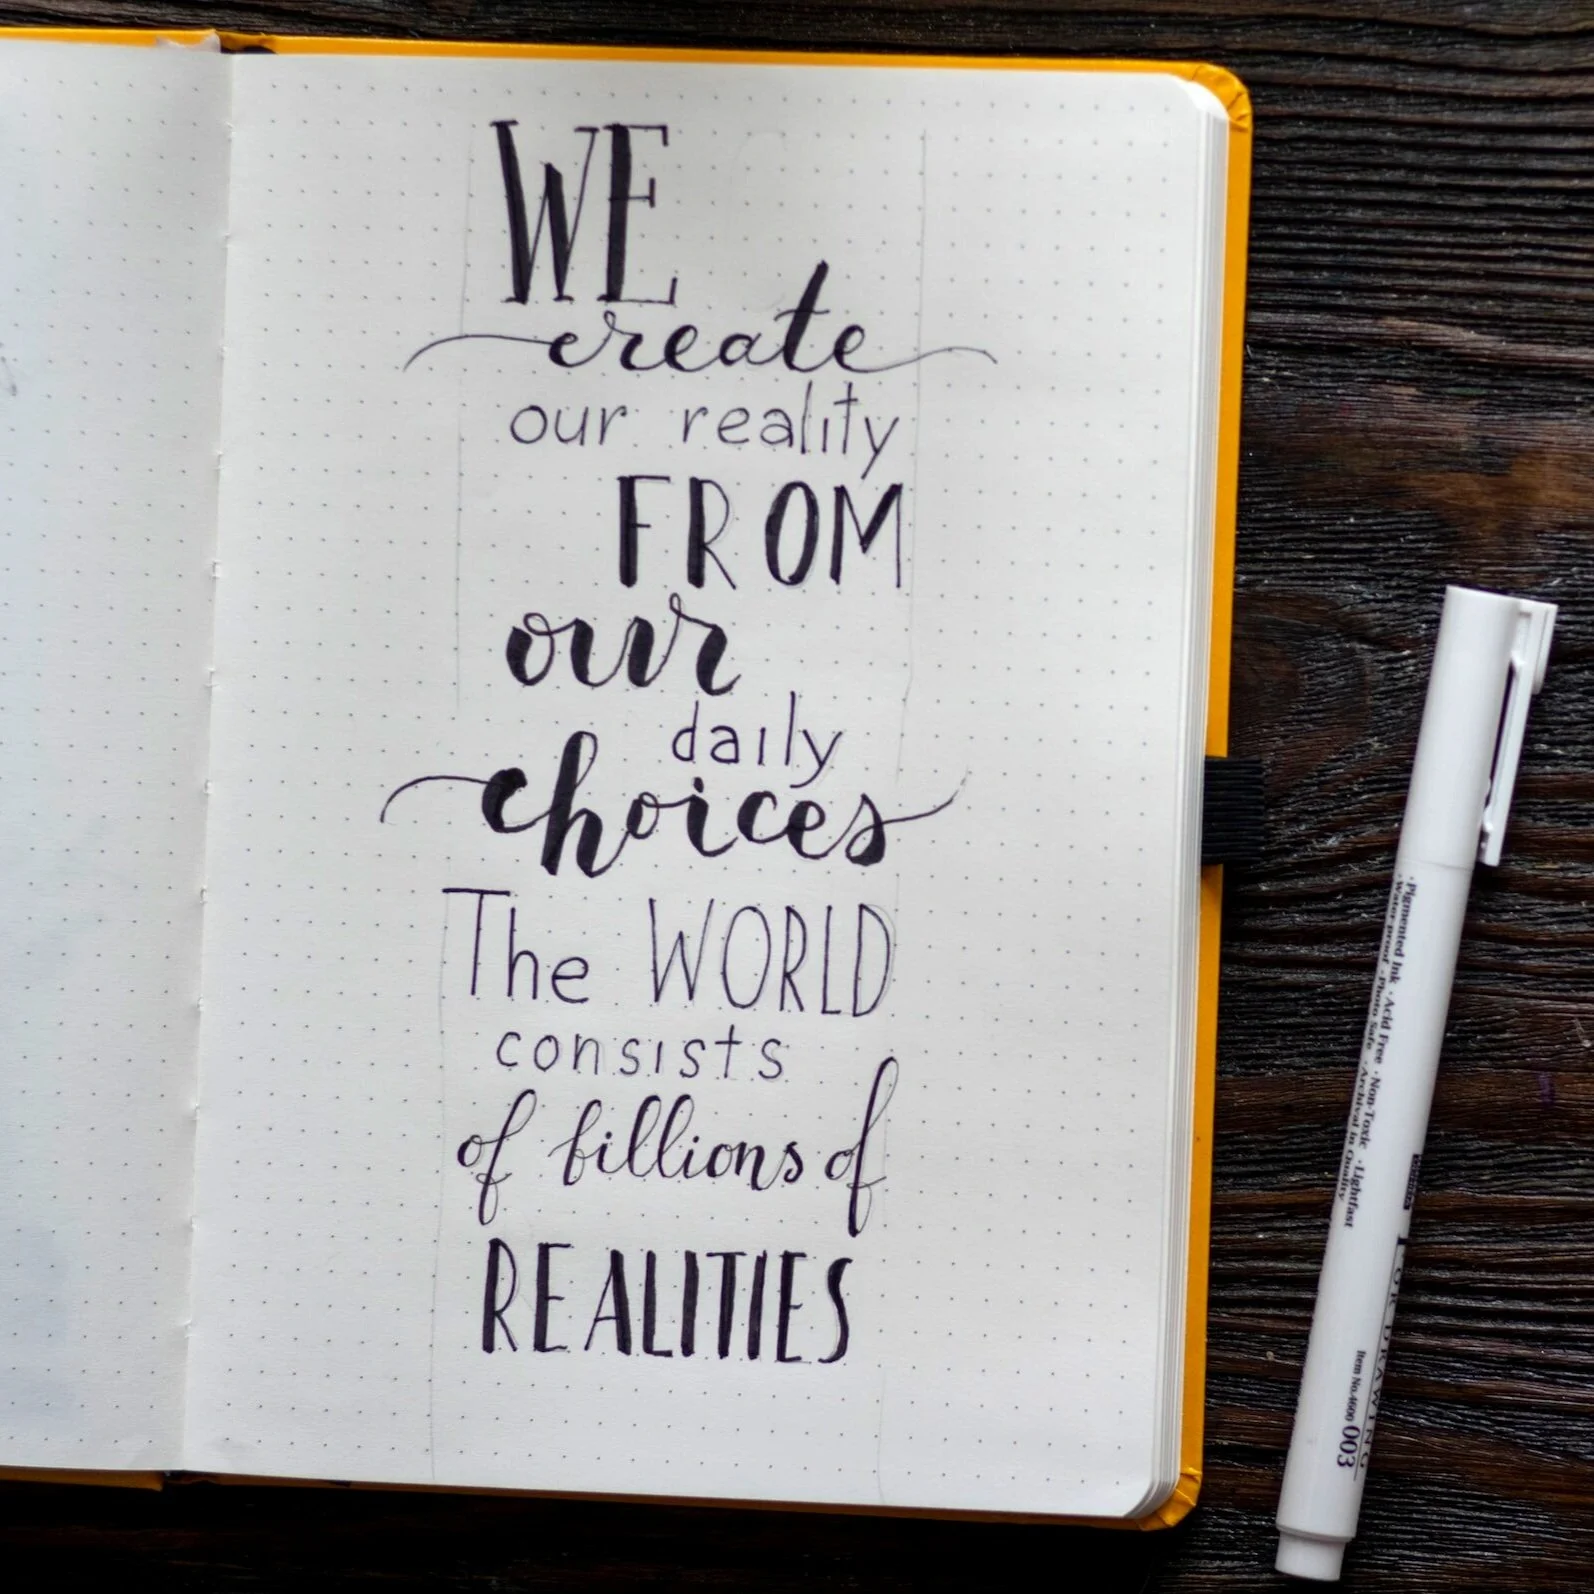 WE
create
our reality
FROM
our
daily
choices
The WORLD
consists
of billions of
REALITIES
· Pigmented Ink · Acid Free · Non Toxic · Lightfast
· Waterproof · Photo Safe · Archival in Quality
FOR DRAWING
Item No.4600 003